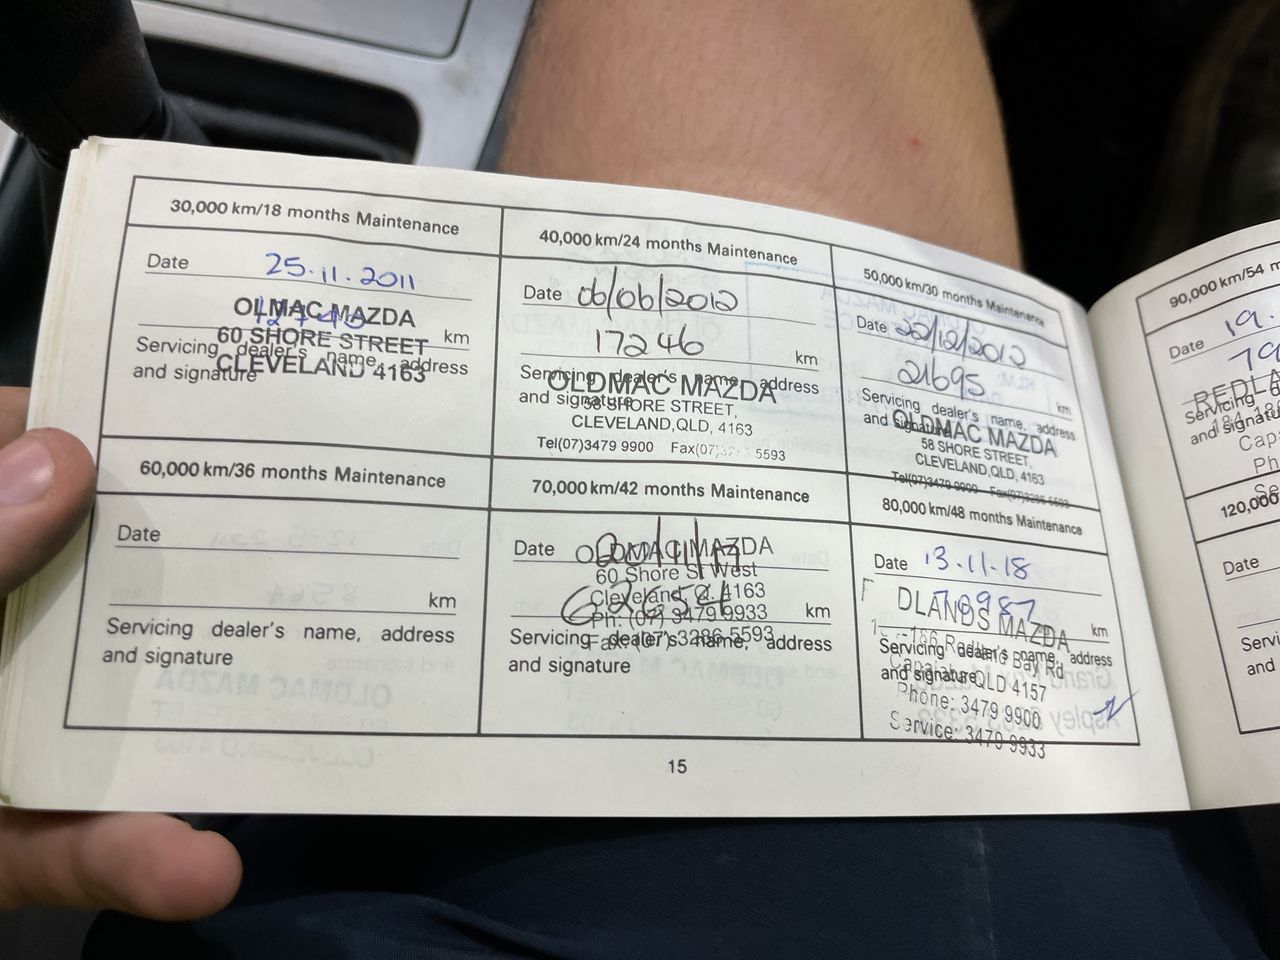 30,000 km/18 months Maintenance
Date 25.11.2011
OLMAC MAZDA
km
60 SHORE STREET
Servicing dealer's name, address
and signature
CLEVELAND 4163
40,000 km/24 months Maintenance
Date 06/06/2012
17246 km
Servicing dealer's name, address
and signature
OLDMAC MAZDA
58 SHORE STREET,
CLEVELAND,QLD, 4163
Tel(07)3479 9900 Fax(07) 5593
50,000 km/30 months Maintenance
Date /12/2012
21695 km
Servicing dealer's name, address
and signature
OLDMAC MAZDA
58 SHORE STREET,
CLEVELAND,QLD, 4163
Tel(07)3479 9900 Fax(07)3286 5593
60,000 km/36 months Maintenance
Date
km
Servicing dealer's name, address
and signature
70,000 km/42 months Maintenance
Date
OLDMAC MAZDA
60 Shore St West
Cleveland, Q. 4163
Ph: (07) 3479 9933
km
Fax: (07) 3286 5593
Servicing dealer's name, address
and signature
80,000 km/48 months Maintenance
Date 13.11.18
DLANDS MAZDA
70987 km
-186 Redland Bay Rd
Servicing dealer's name, address
and signature
Capalaba QLD 4157
Phone: 3479 9900
Service: 3479 9933
15
90,000 km/54 m
Date 19.
79
REDLA
Servicing
and signatu
Cap
Ph
Se
120,000
Date
Servi
and